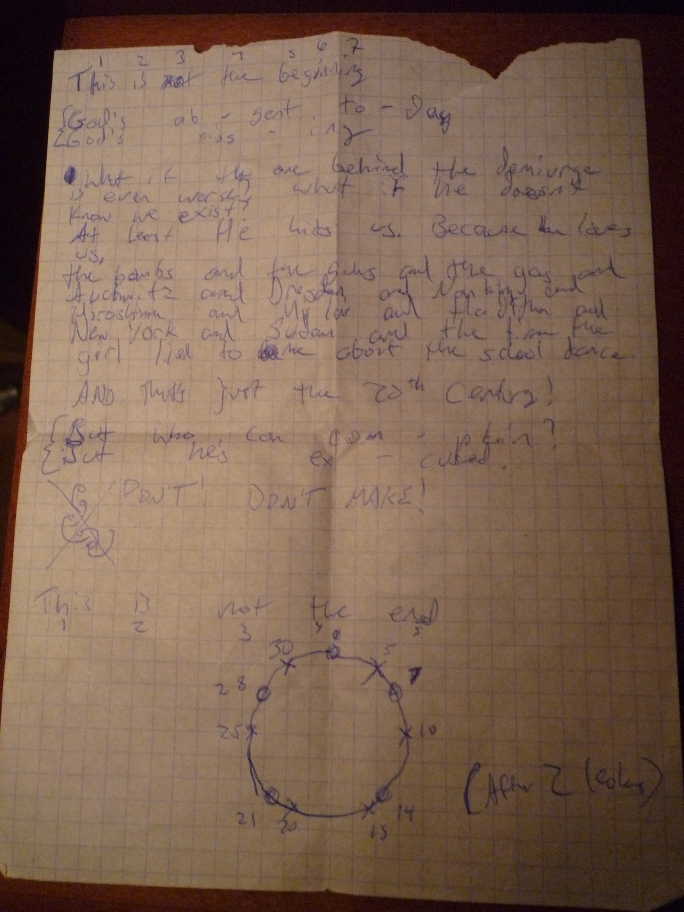 1 2 3 4 5 6 7
This is not the beginning
God's ab - sent to - day
God's miss - ing
What if the one behind the demiurge
is even worse, what if he doesn't
know we exist?
At least He hits us. Because He loves
us.
the bombs and the guns and the gas and
Auschwitz and Dresden and Nanking and
Hiroshima and My Lai and and
New York and Sudan and the time the
girl lied to me about the school dance.
AND that's just the 20th Century!
But who can com - plain?
But he's ex - cused.
'DON'T! DON'T MAKE!
This is not the end
1 2 3 4 5
30 0 5
28 7
25 10
(After 2
21 20 15 14